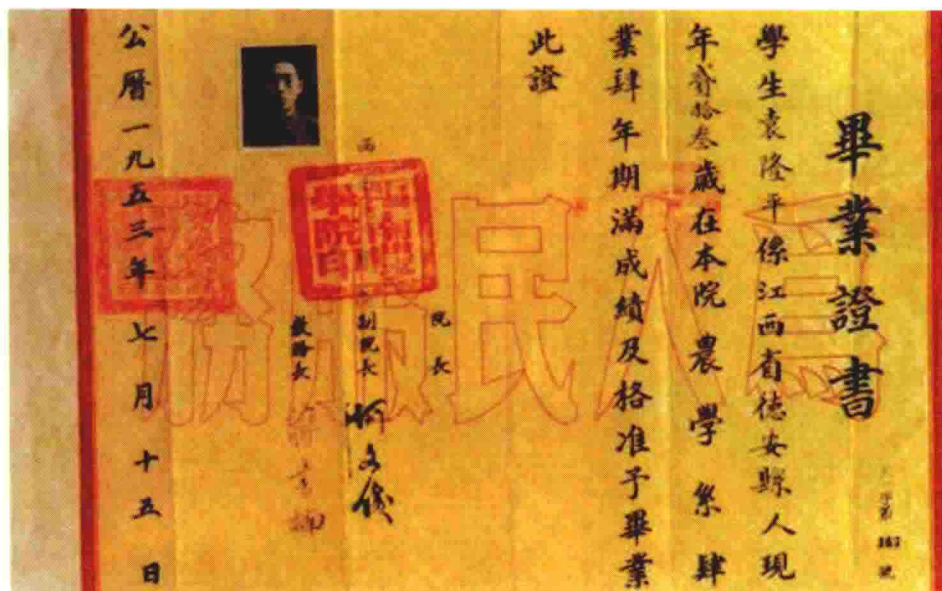 畢業證書
字第163號
學生袁隆平係江西省德安縣人現
年貳拾叁歲在本院農學系肆
業肆年期滿成績及格准予畢業
此證
院長
副院長 何文俊
教務長
公曆一九五三年七月十五日
為人民服務